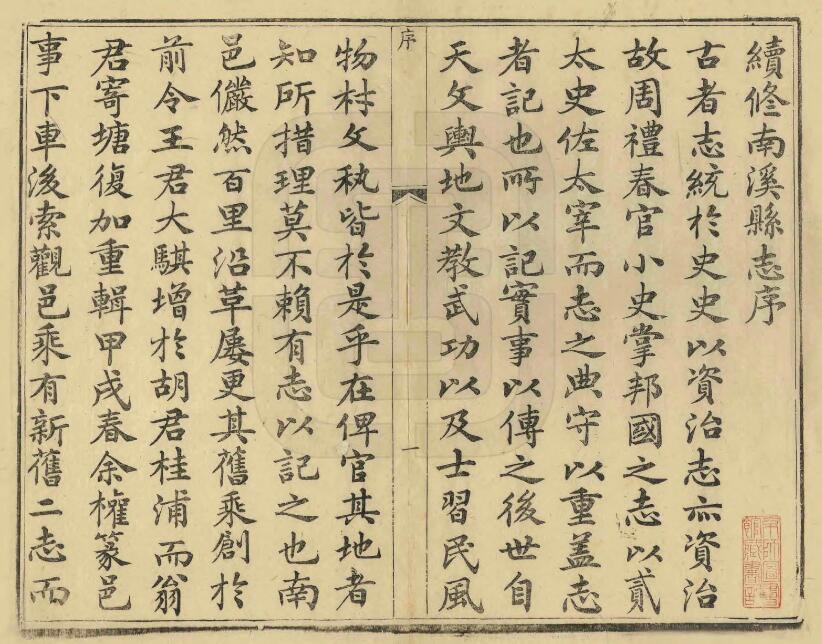 續修南溪縣志序
古者志統於史史以資治志亦資治
故周禮春官小史掌邦國之志以貳
太史佐太宰而志之典守以重蓋志
者記也所以記實事以傳之後世自
天文輿地文教武功以及士習民風
序
一
物材文秇皆於是乎在俾官其地者
知所措理莫不賴有志以記之也南
邑儼然百里沿革屢更其舊乘創於
前令王君大騏增於胡君桂浦而翁
君寄塘復加重輯甲戌春余權篆邑
事下車後索觀邑乘有新舊二志而